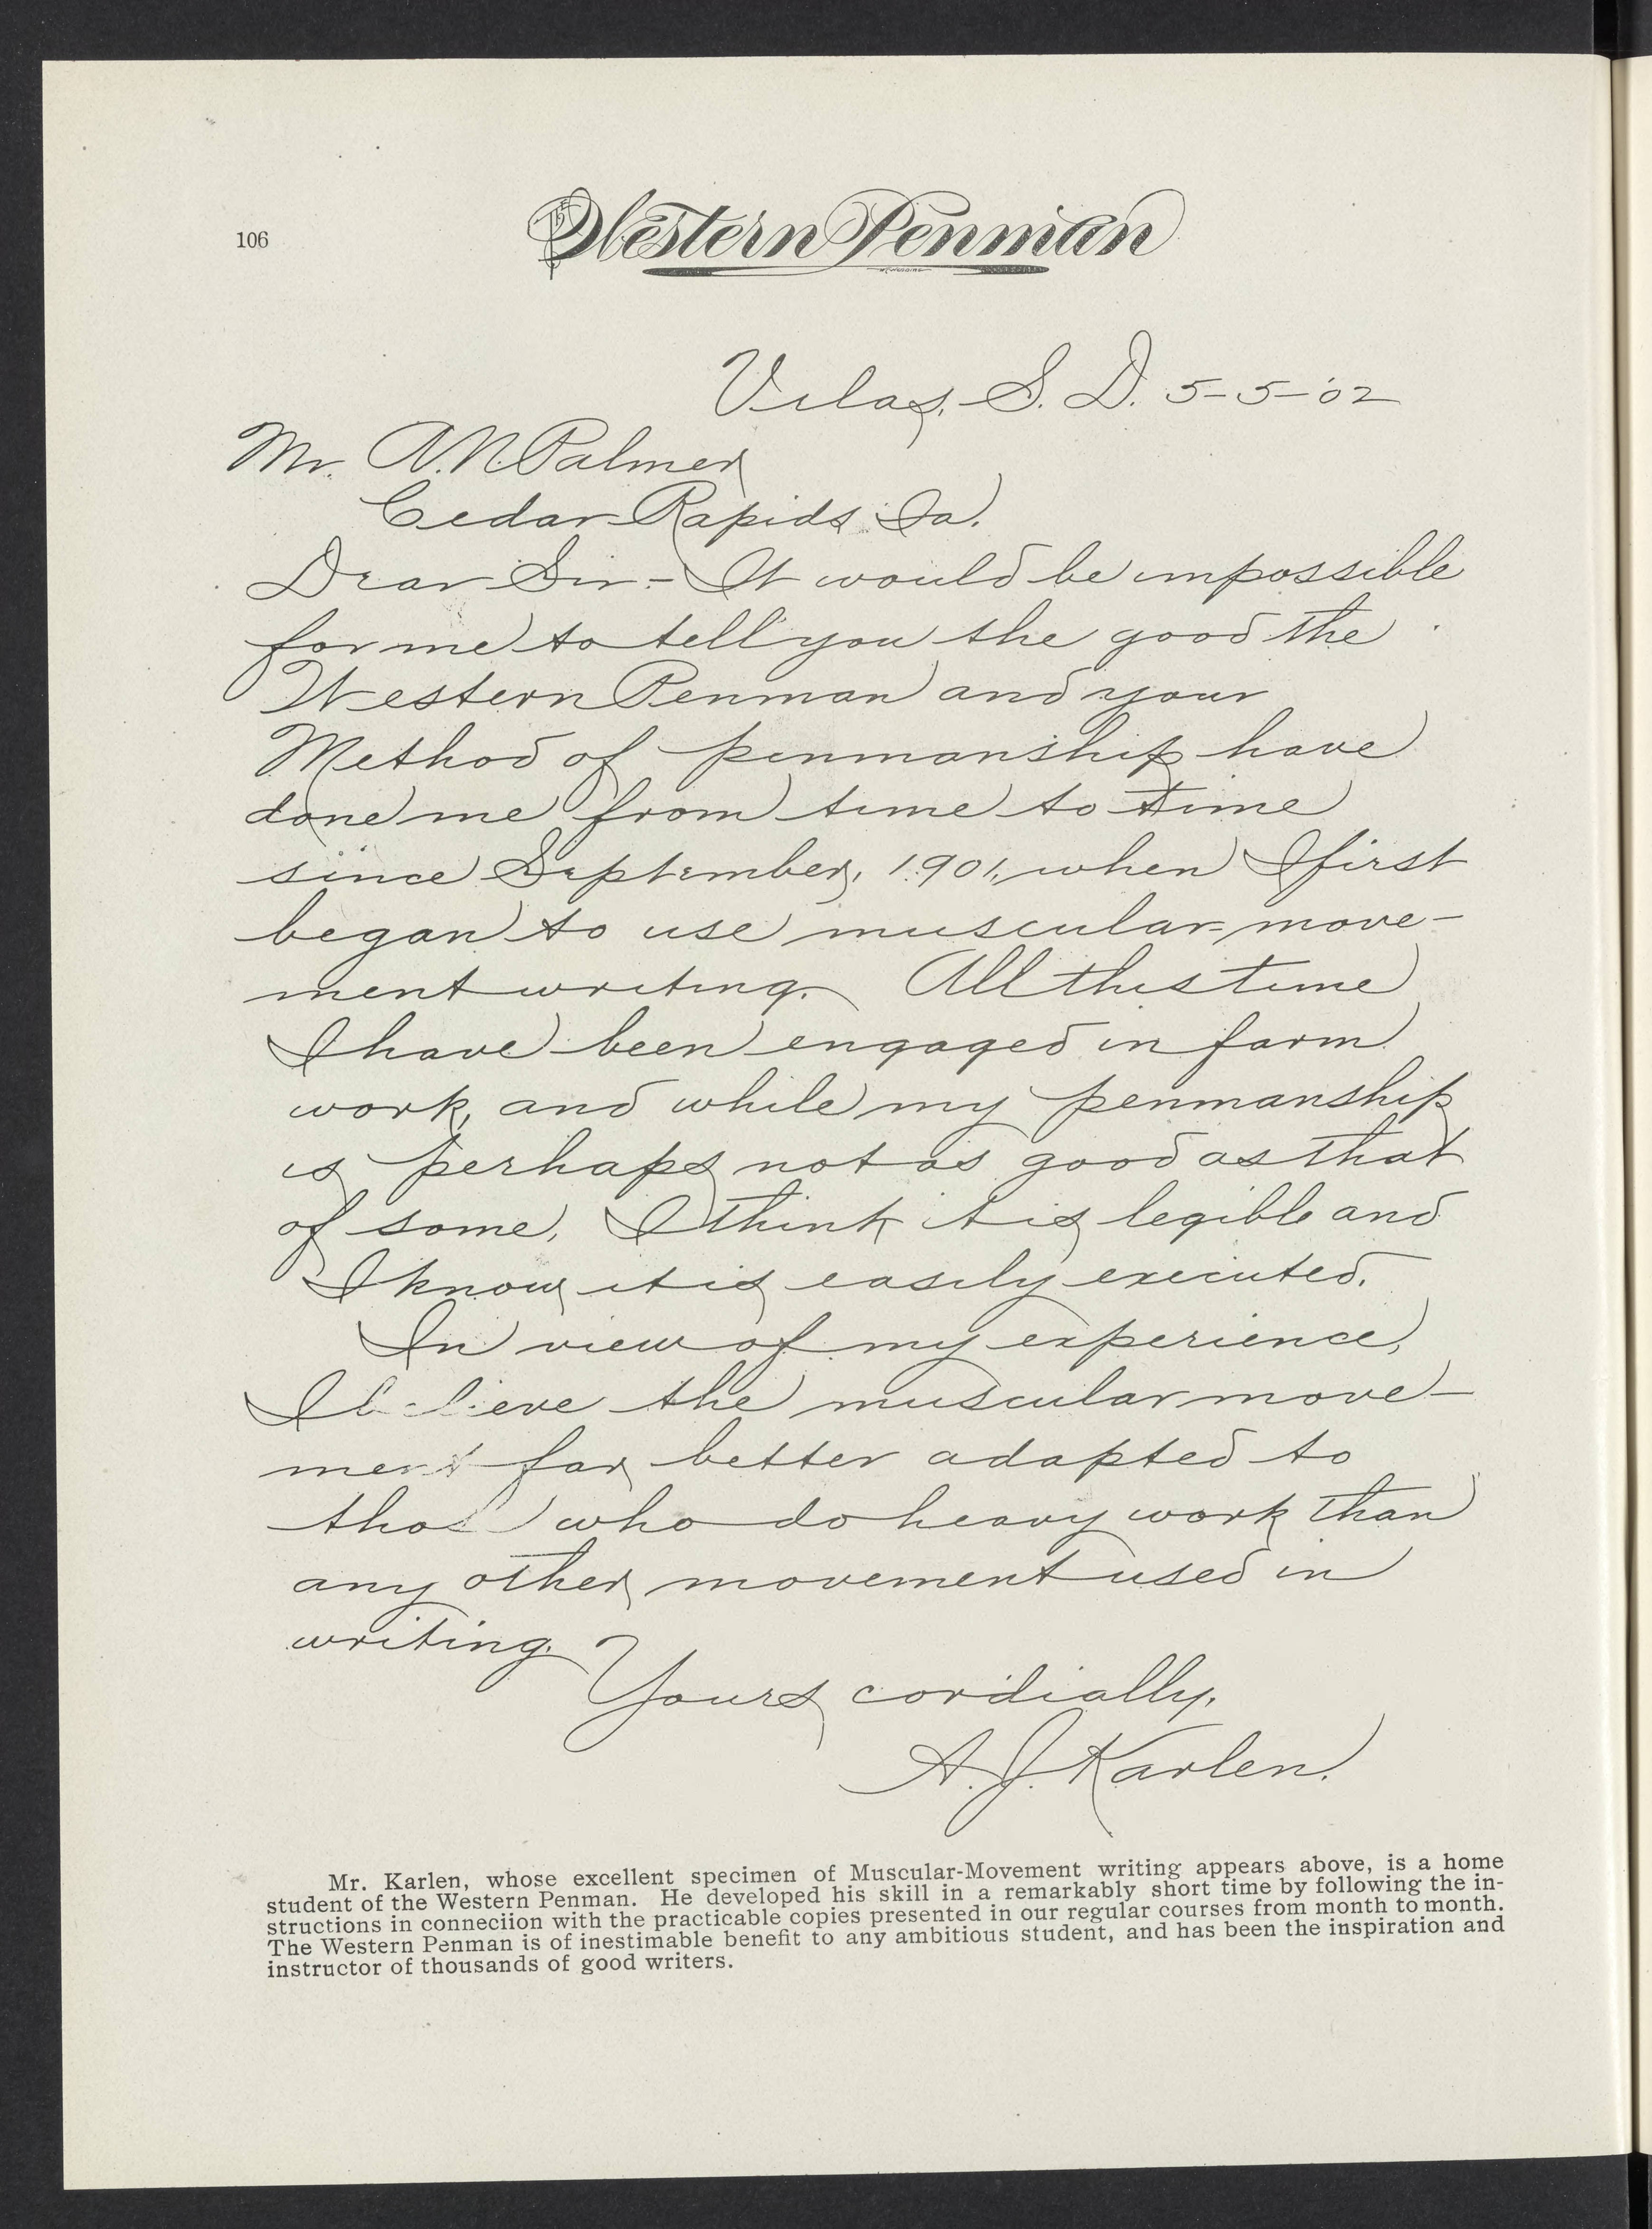 106
The Western Penman
Vilas, S. D. 5-5-'02
Mr. A. N. Palmer
Cedar Rapids Ia.
Dear Sir:- It would be impossible
for me to tell you the good the
Western Penman and your
Method of penmanship have
done me from time to time
since September, 1901, when I first
began to use muscular move-
ment writing. All this time
I have been engaged in farm
work, and while my penmanship
is perhaps not as good as that
of some, I think it is legible and
I know it is easily executed.
In view of my experience,
I believe the muscular move-
ment far better adapted to
those who do heavy work than
any other movement used in
writing.
Yours cordially,
A. J. Karlen.
Mr. Karlen, whose excellent specimen of Muscular-Movement writing appears above, is a home
student of the Western Penman. He developed his skill in a remarkably short time by following the in-
structions in conneciion with the practicable copies presented in our regular courses from month to month.
The Western Penman is of inestimable benefit to any ambitious student, and has been the inspiration and
instructor of thousands of good writers.